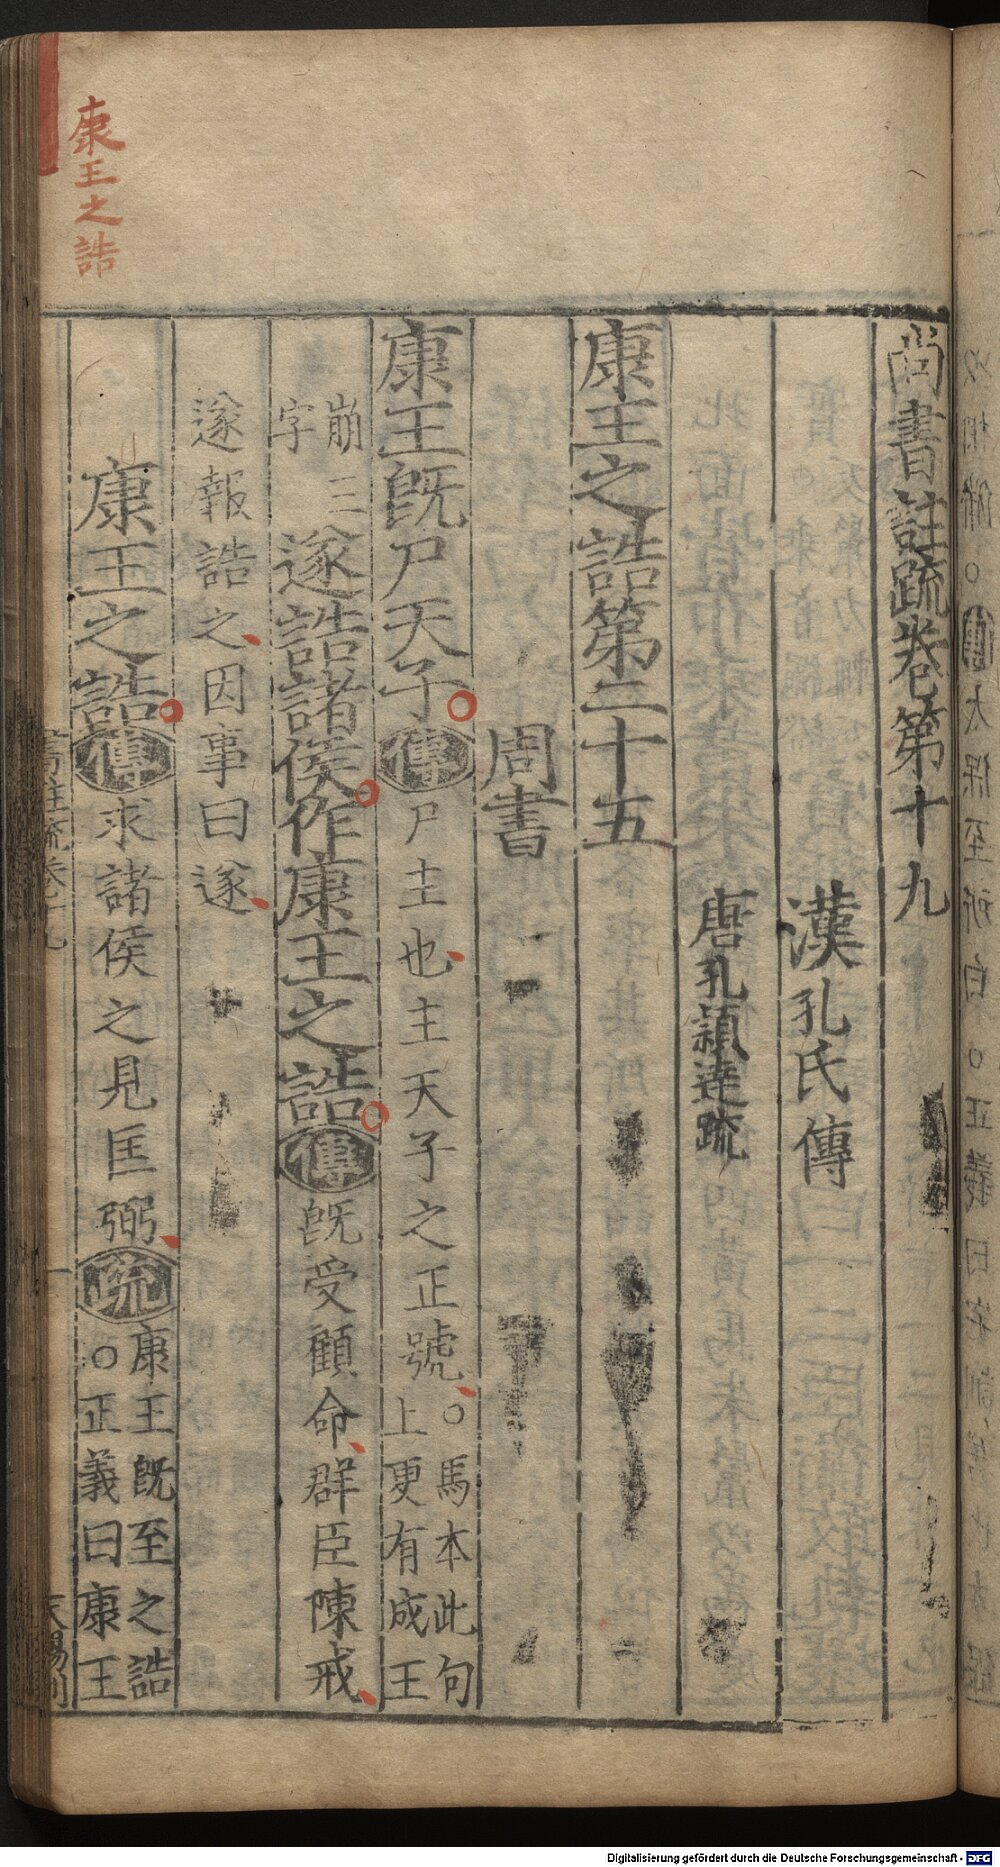 尚書註疏卷第十九
漢孔氏傳
唐孔穎達疏
康王之誥第二十五
周書
康王旣尸天子傳尸主也主天子之正號○馬本此句上更有成王
崩字三遂誥諸侯作康王之誥傳旣受顧命群臣陳戒
遂報誥之因事曰遂
康王之誥傳求諸侯之見匡弼疏康王旣至之誥○正義曰康王
康王之誥
Digitalisierung gefördert durch die Deutsche Forschungsgemeinschaft - DFG